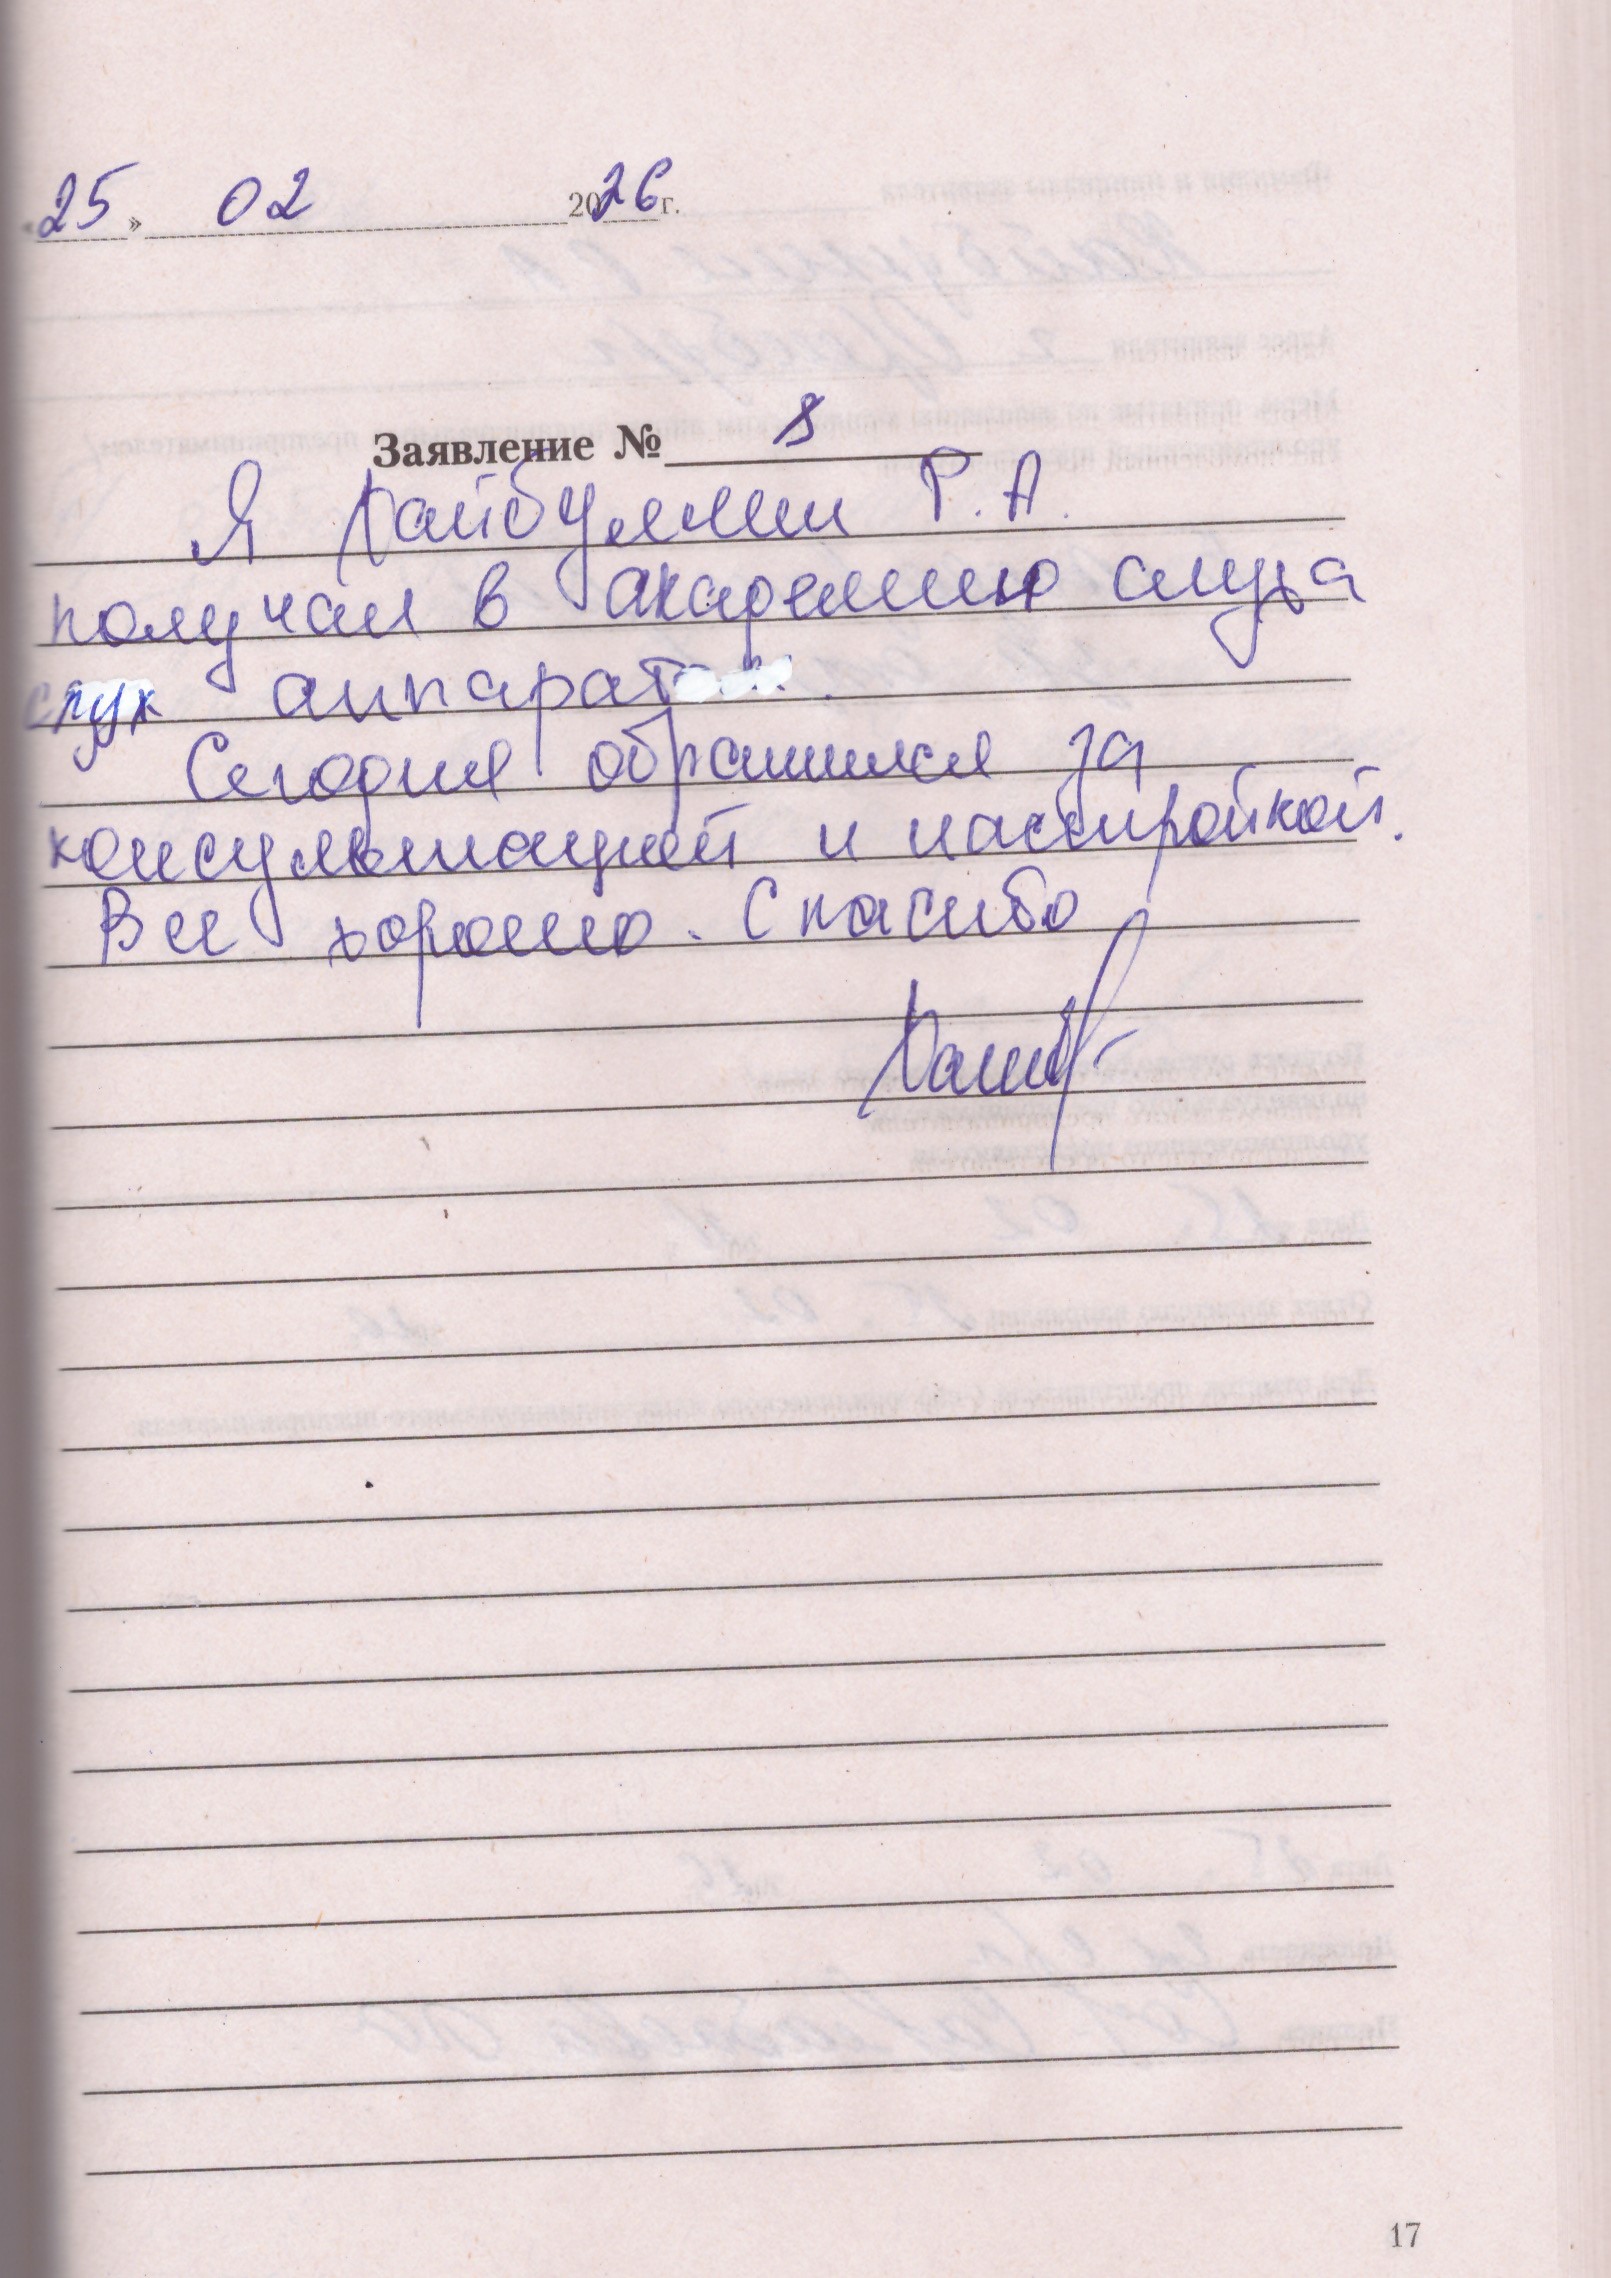 «25» 02 2026 г.
Заявление № 8
Я Хайбуллин Р. А.
получал в академию слуха
слух аппарат.
Сегодня обратился за
консультацией и настройкой.
Все хорошо. Спасибо
17